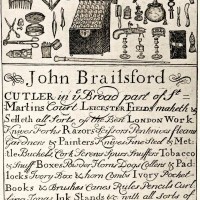 John Brailsford
CUTLER in ye Broad part of St
Martins Court LEICESTER FIELDS maketh &
Selleth all Sorts of the Best LONDON Work
Knives Forks RAZORS Scissors Penknives fleams
Gardners & Painters Knives Fine Steel & Met-
tle Buckles Cork Screws Spurs Snuffers Tobacco
& Snuff BOXES Powder Horns Dog Collers & Pad-
locks Ivory Box & horn Combs Ivory Pocket-
Books & Brushes Canes Rules Pencils Curl
Irons Ink Stands & with all Sorts of